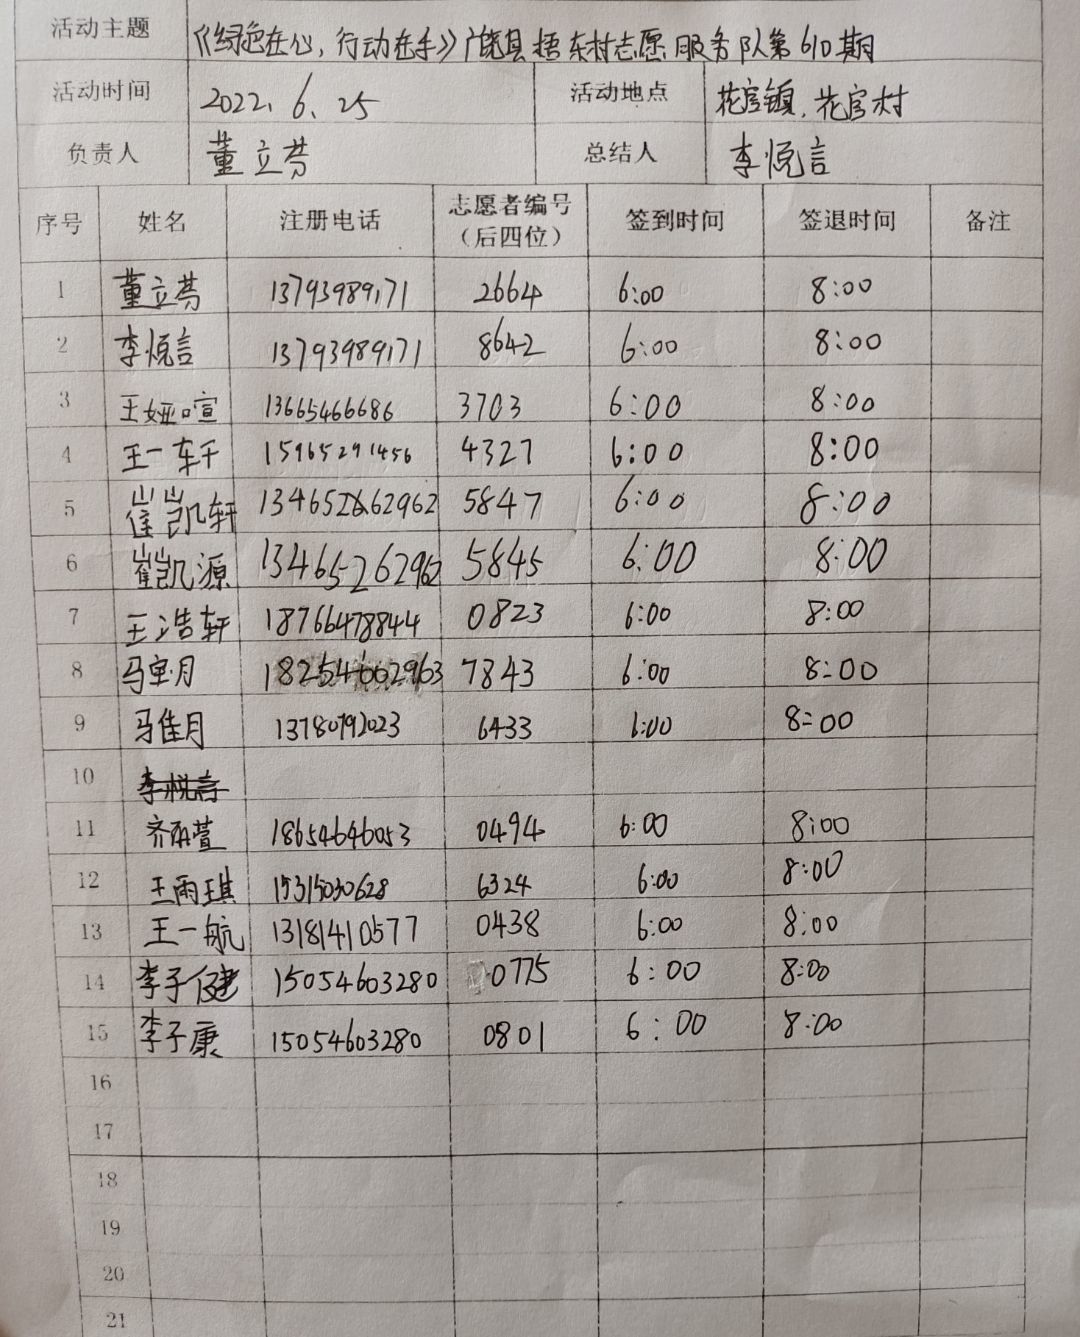 活动主题 《绿色在心，行动在手》广饶县梧东村志愿服务队第610期
活动时间 2022.6.25 活动地点 花官镇.花官村
负责人 董立芬 总结人 李悦言
序号 姓名 注册电话 志愿者编号（后四位） 签到时间 签退时间 备注
1 董立芬 13793989171 2664 6:00 8:00
2 李悦言 13793989171 8642 6:00 8:00
3 王娅喧 13665466686 3703 6:00 8:00
4 王一 15965291456 4327 6:00 8:00
5 崔凯轩 5847 6:00 8:00
6 崔凯源 13465262962 5845 6:00 8:00
7 王浩轩 18766478844 0823 6:00 8:00
8 马宝月 7843 6:00 8:00
9 马佳月 13780792023 6433 6:00 8:00
10
11 齐 萱 18654646053 0494 6:00 8:00
12 王雨琪 15315030628 6324 6:00 8:00
13 王一航 13181410577 0438 6:00 8:00
14 李子健 15054603280 0775 6:00 8:00
15 李子康 15054603280 0801 6:00 8:00
16
17
18
19
20
21